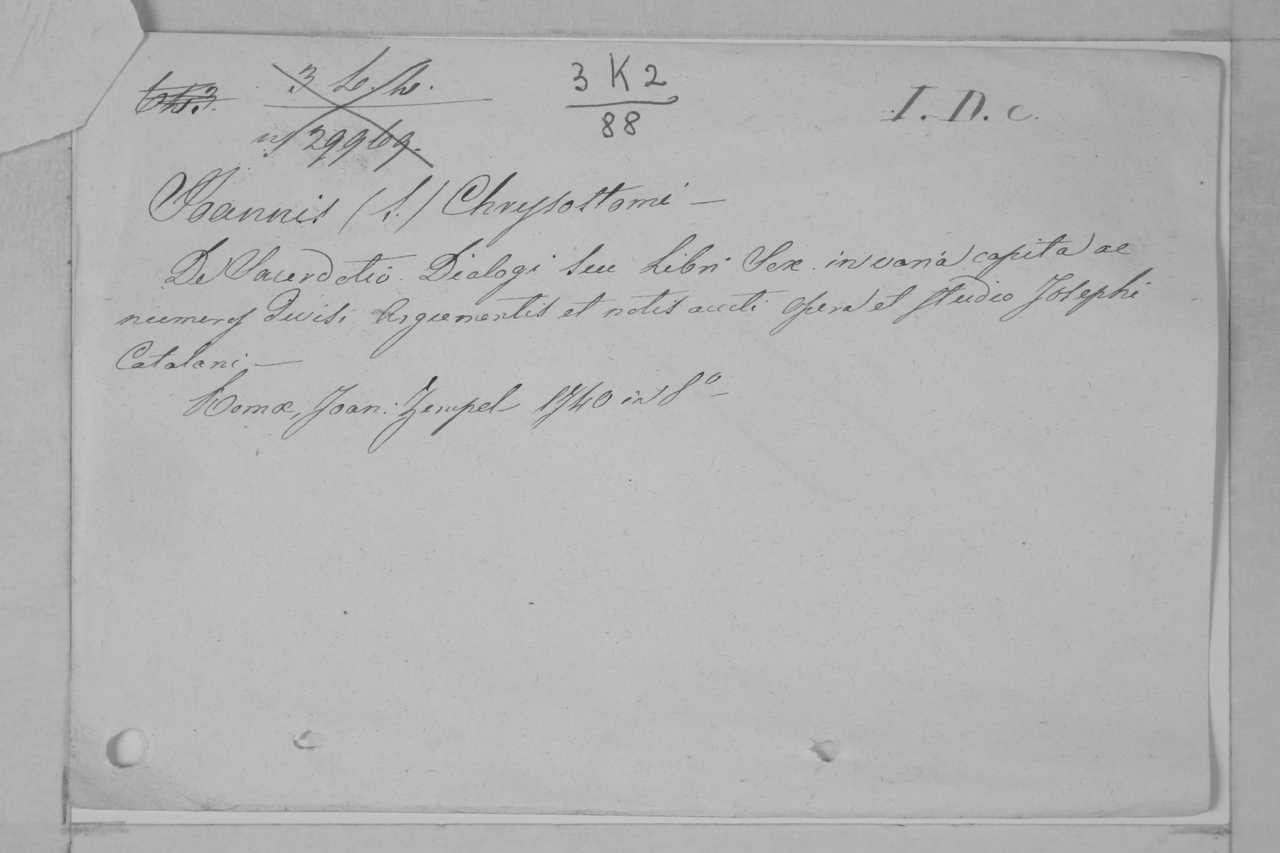 3 K 2
88
I. D. c.
Joannis (S.) Chrysostomi —
De Sacerdotio Dialogi seu Libri Sex in varia capita ac
numeros divisi Argumentis et notis aucti opera et studio Josephi
Catalani —
Romæ, Joan: Zempel 1740 in 8º —